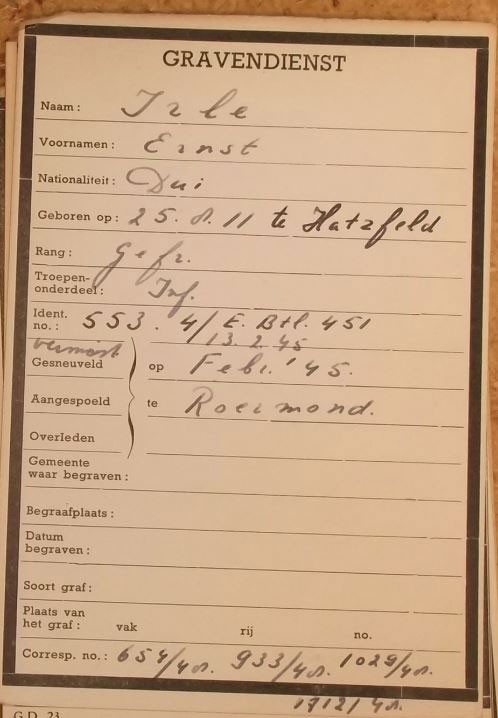 GRAVENDIENST
Naam: Irle
Voornamen: Ernst
Nationaliteit: Dui
Geboren op: 25. 8. 11 te Hatzfeld
Rang: Gefr.
Troepen-
onderdeel: Inf.
Ident.
no.: 553. 4/E. Btl. 451
vermist 13.2.45
Gesneuveld op Febr. '45.
Aangespoeld te Roermond.
Overleden
Gemeente
waar begraven:
Begraafplaats:
Datum
begraven:
Soort graf:
Plaats van
het graf: vak rij no.
Corresp. no.: 654/48. 933/48. 1029/48.
1712/48.
G.D. 23